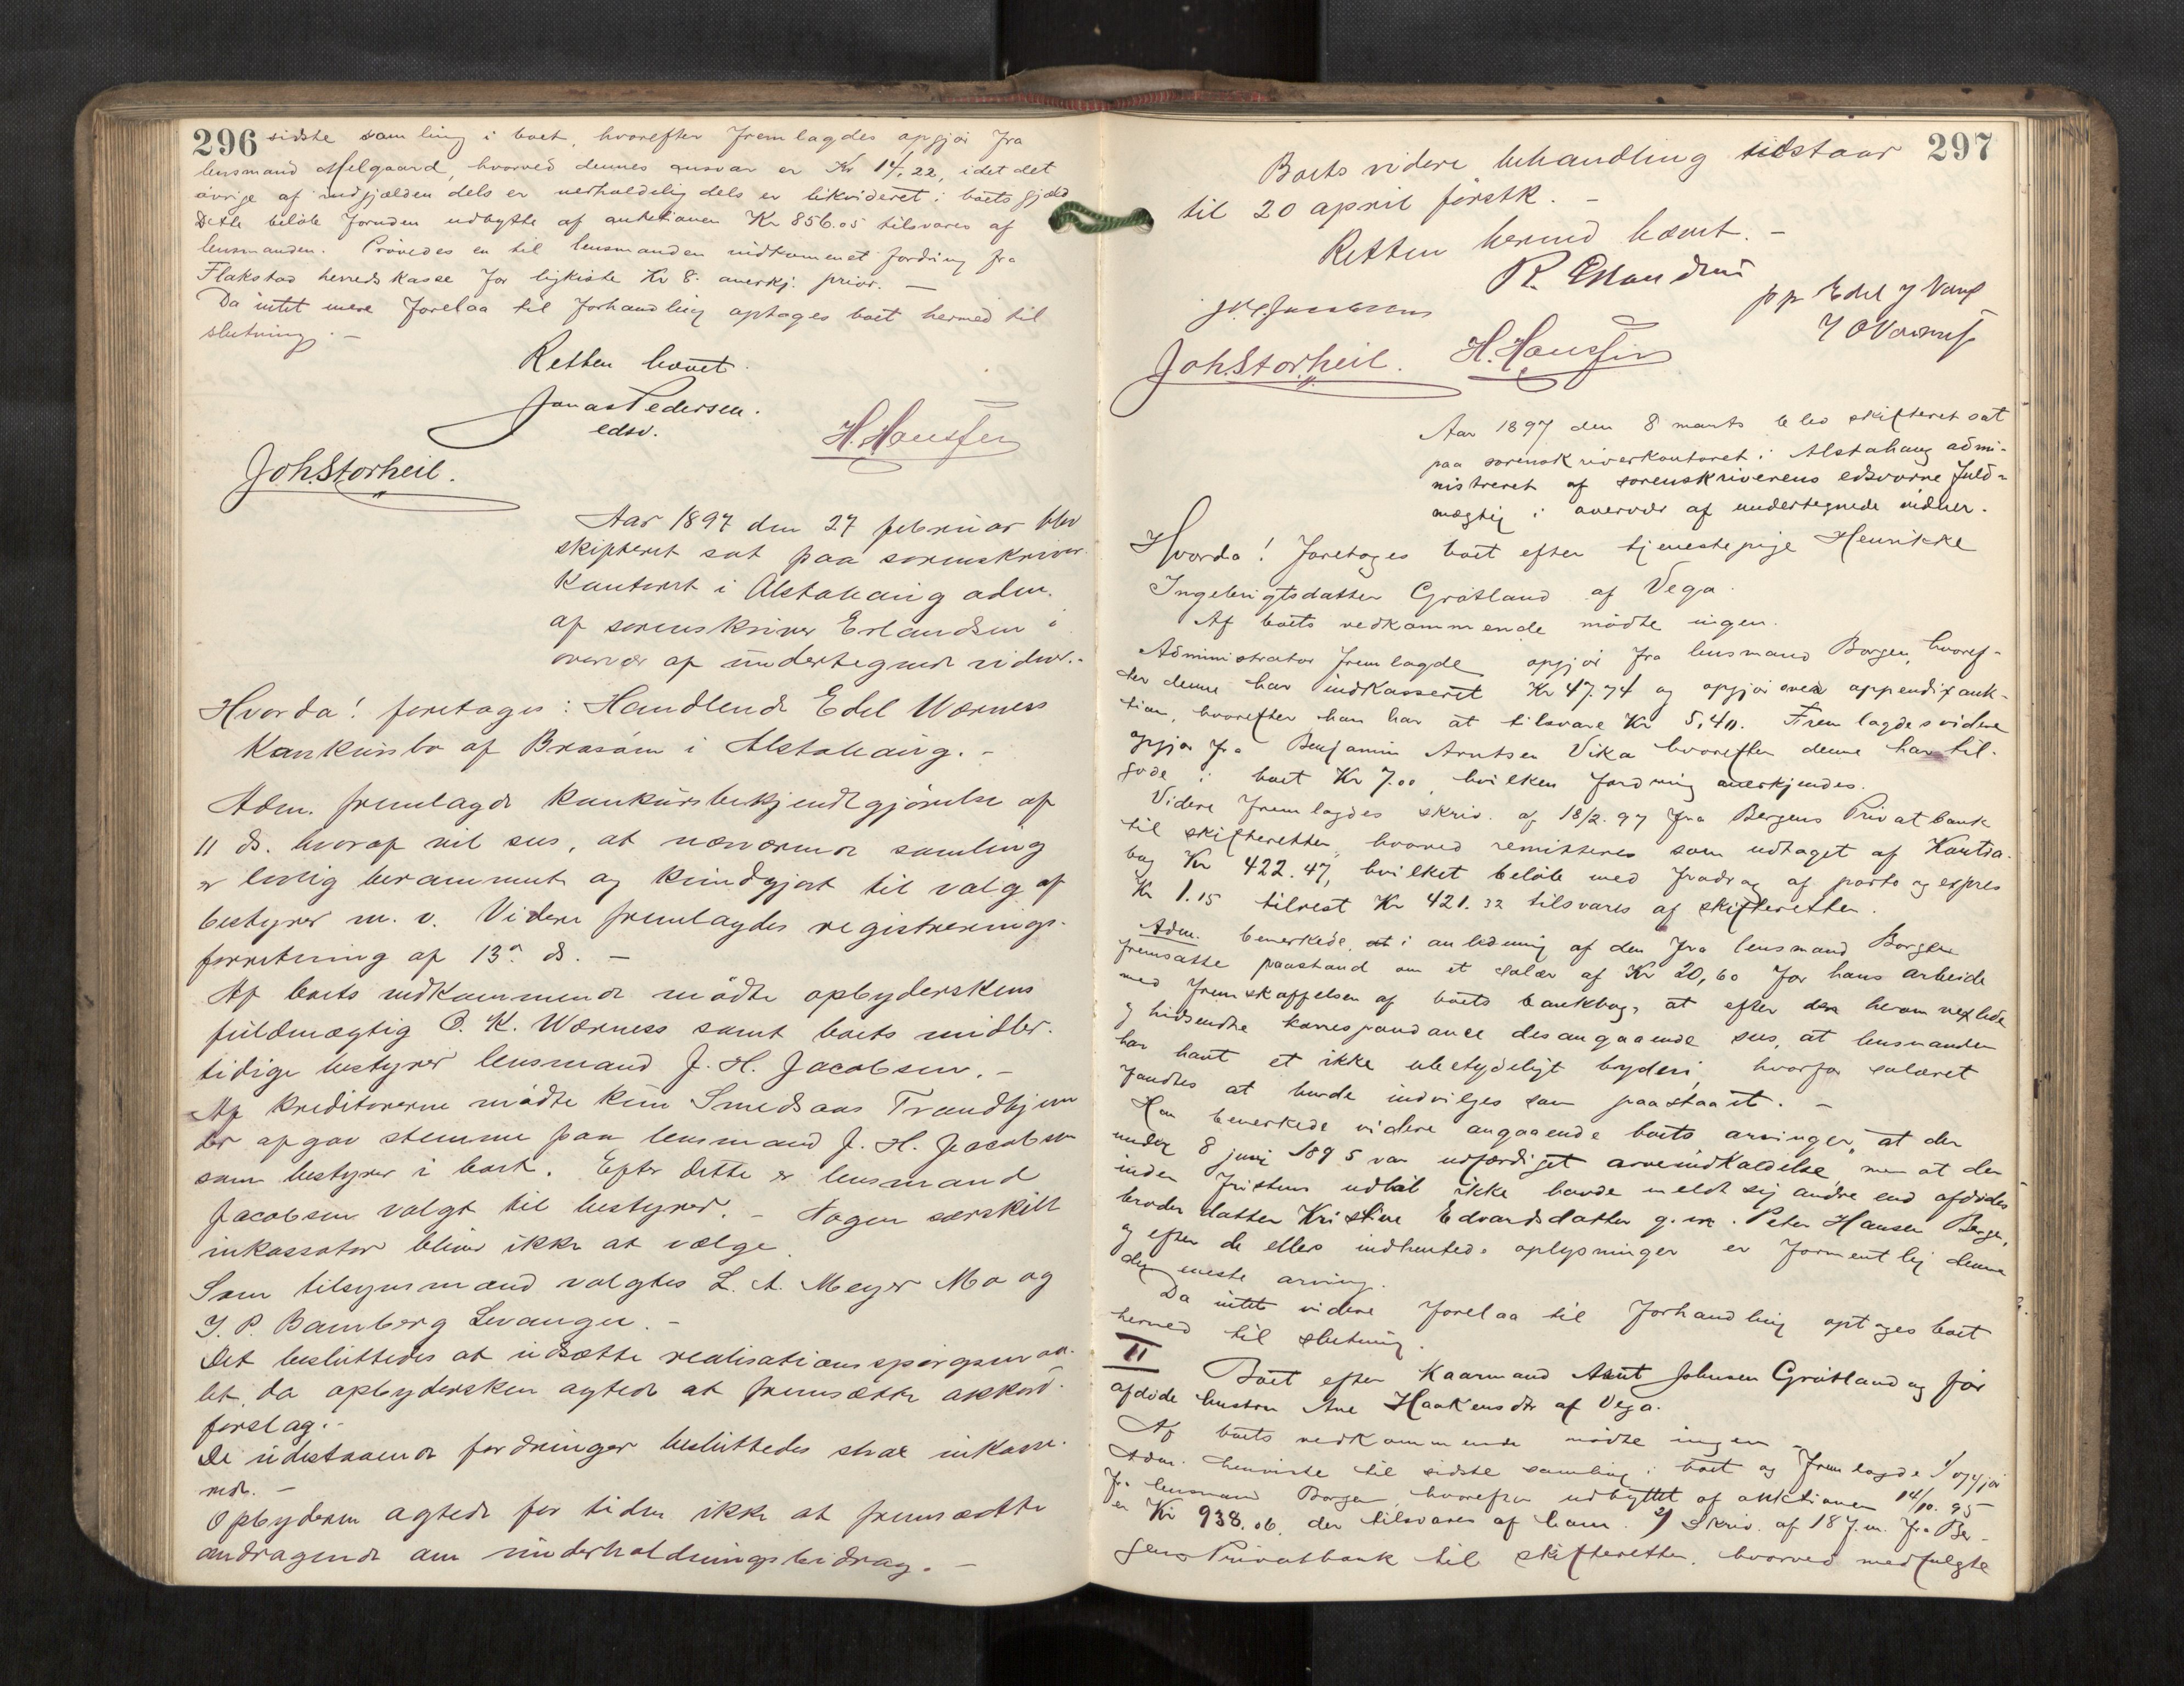 296 sidste samling i boet, hvorefter fremlagdes opgjør fra
lensmand Melgaard, hvorved dennes ansvar er Kr 14,22, idet det
øvrige af indgjælden dels er uerholdelig dels er likvideret i boets gjæld
Dette beløb foruden udbytte af auktionen Kr 856.05 tilsvares af
lensmanden. Prøvedes en til lensmanden indkommet fordring fra
Flakstad herreds kasse for ligkiste Kr 8. anerkj. prior. —
Da intet mere forelaa til forhandling optages boet hermed til
slutning. —
Retten hævet.
Jonas Pedersen.
edsv.
H. Hanssen
Joh. Storheil.
Aar 1897 den 27 februar blev
skifteret sat paa sorenskriver-
kontoret i Alstahaug adm.
af sorenskriver Erlandsen i
overvær af undertegnede vidner. -
Hvorda! foretages: Handlende Edel Wærness
konkursbo af Brasøen i Alstahaug. -
Adm. fremlagde konkursbekjendtgjørelse af
11 ds. hvoraf vil sees, at nærværende samling
er lovlig berammet og kundgjort til valg af
bestyrer m. v. Videre fremlagdes registrerings-
forretning af 13 ds. —
Af boets vedkommende mødte opbyderskens
fuldmægtig O. K. Wærness samt boets midler-
tidige bestyrer lensmand J. H. Jacobsen. -
Af kreditorerne mødte kun Smedsaas Trondhjem
der afgav stemme paa lensmand J. H. Jacobsen
som bestyrer i boet. Efter dette er lensmand
Jacobsen valgt til bestyrer. - Nogen særskilt
inkassator bliver ikke at vælge.
Som tilsynsmænd valgtes L. A. Meyer Mo og
J. P. Bamberg Levanger. -
Det besluttedes at udsætte realisationsspørgsmaa-
let, da opbydersken agtede at fremsætte akkord-
forslag. -
De udestaaende fordringer besluttedes strax inkasse-
rede. -
Opbyderen agtede for tiden ikke at fremsætte
andragende om underholdningsbidrag. —
297
Boets videre behandling udstaar
til 20 april førstk. -
Retten hermed hævet. -
R. Erlandsen
J. H. Jacobsen
pp Edel J Værnes
J O Værnes
Joh. Storheil. H. Hanssen
Aar 1897 den 8 marts blev skifteret sat
paa sorenskriverkontoret i Alstahaug admi-
nistreret af sorenskriverens edsvorne fuld-
mægtig i overvær af undertegnede vidner.
Hvorda! foretages boet efter tjenestepige Henrikke
Ingebrigtsdatter Grøtland af Vega.
Af boets vedkommende mødte ingen.
Administrator fremlagde opgjør fra lensmand Borgen, hvoref-
ter denne har indkasseret Kr 47.74 og opgjør over appendixauk-
tion, hvorefter han har at tilsvare Kr 5,40. Fremlagdes videre
opgjør fra Benjamin Arntsen Vika hvorefter denne har til-
gode i boet Kr 7.00, hvilken fordring anerkjendes.
Videre fremlagdes skriv. af 18/2. 97 fra Bergens Privatbank
til skifteretten, hvorved remitteres som udtaget af Kontra-
bog Kr 422.47, hvilket beløb med fradrag af porto og expres
Kr 1.15 tilrest Kr 421.32 tilsvares af skifteretten.
Adm. bemerkede, at i anledning af den fra lensmand Borgen
fremsatte paastand om et salær af Kr 20,60 for hans arbeide
med fremskaffelsen af boets bankbog, at efter den herom vexlede
og hidsendte korrespondance desangaaende sees, at lensmanden
har havt et ikke ubetydeligt bryderi, hvorfor salæret
fandtes at burde indvilges som paastaaet. —
Han bemerkede videre angaaende boets arvinger, at der
under 8 juni 1895 var udfærdiget arveindkaldelse men at der
inden fristens udløb ikke havde meldt sig andre end afdødes
broderdatter Kristine Edvardsdatter g. m. Peter Hansen Berge,
og efter de ellers indhentede oplysninger er formentlig denne
den eneste arving.
Da intet videre forelaa til forhandling optages boet
hermed til slutning.
II Boet efter Kaarmand Arnt Johnsen Grøtland og før
afdøde hustru Ane Haakensdtr af Vega.
Af boets vedkommende mødte ingen -
Adm. henviste til sidste samling i boet og fremlagde 1/ opgjør
fra lensmand Borgen, hvorefter udbyttet af auktionen 14/10. 95
er Kr 938.06. der tilsvares af ham. 2/ Skriv. af 18 f. m. fra Ber-
gens Privatbank til skifteretten. hvorved medfulgte